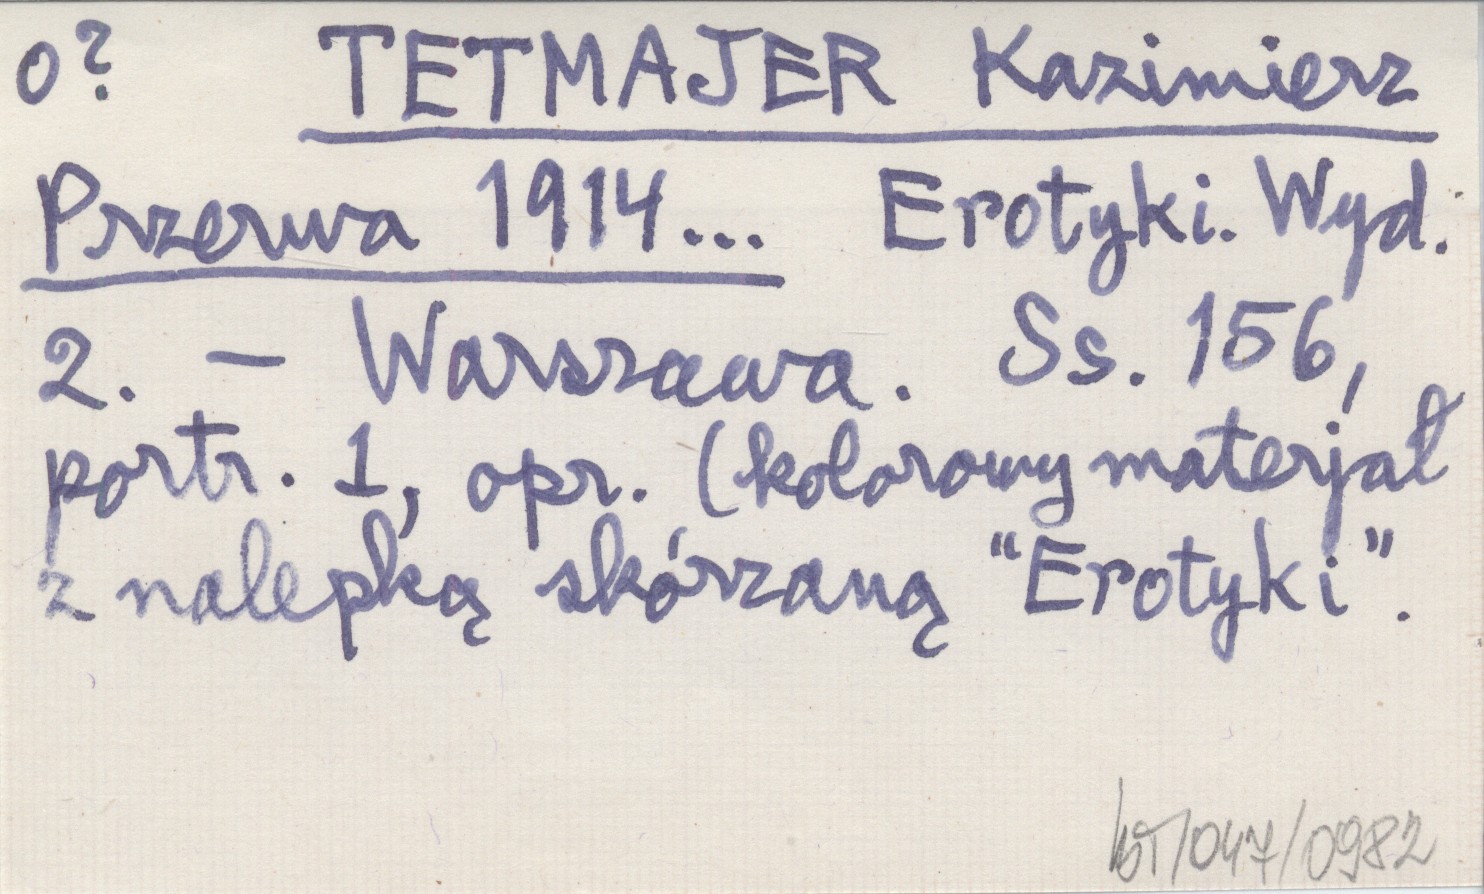 o? TETMAJER Kazimierz
Przerwa 1914... Erotyki. Wyd.
2. — Warszawa. Ss. 156,
portr. 1, opr. (kolorowy materjał
z nalepką skórzaną "Erotyki".
/047/0982